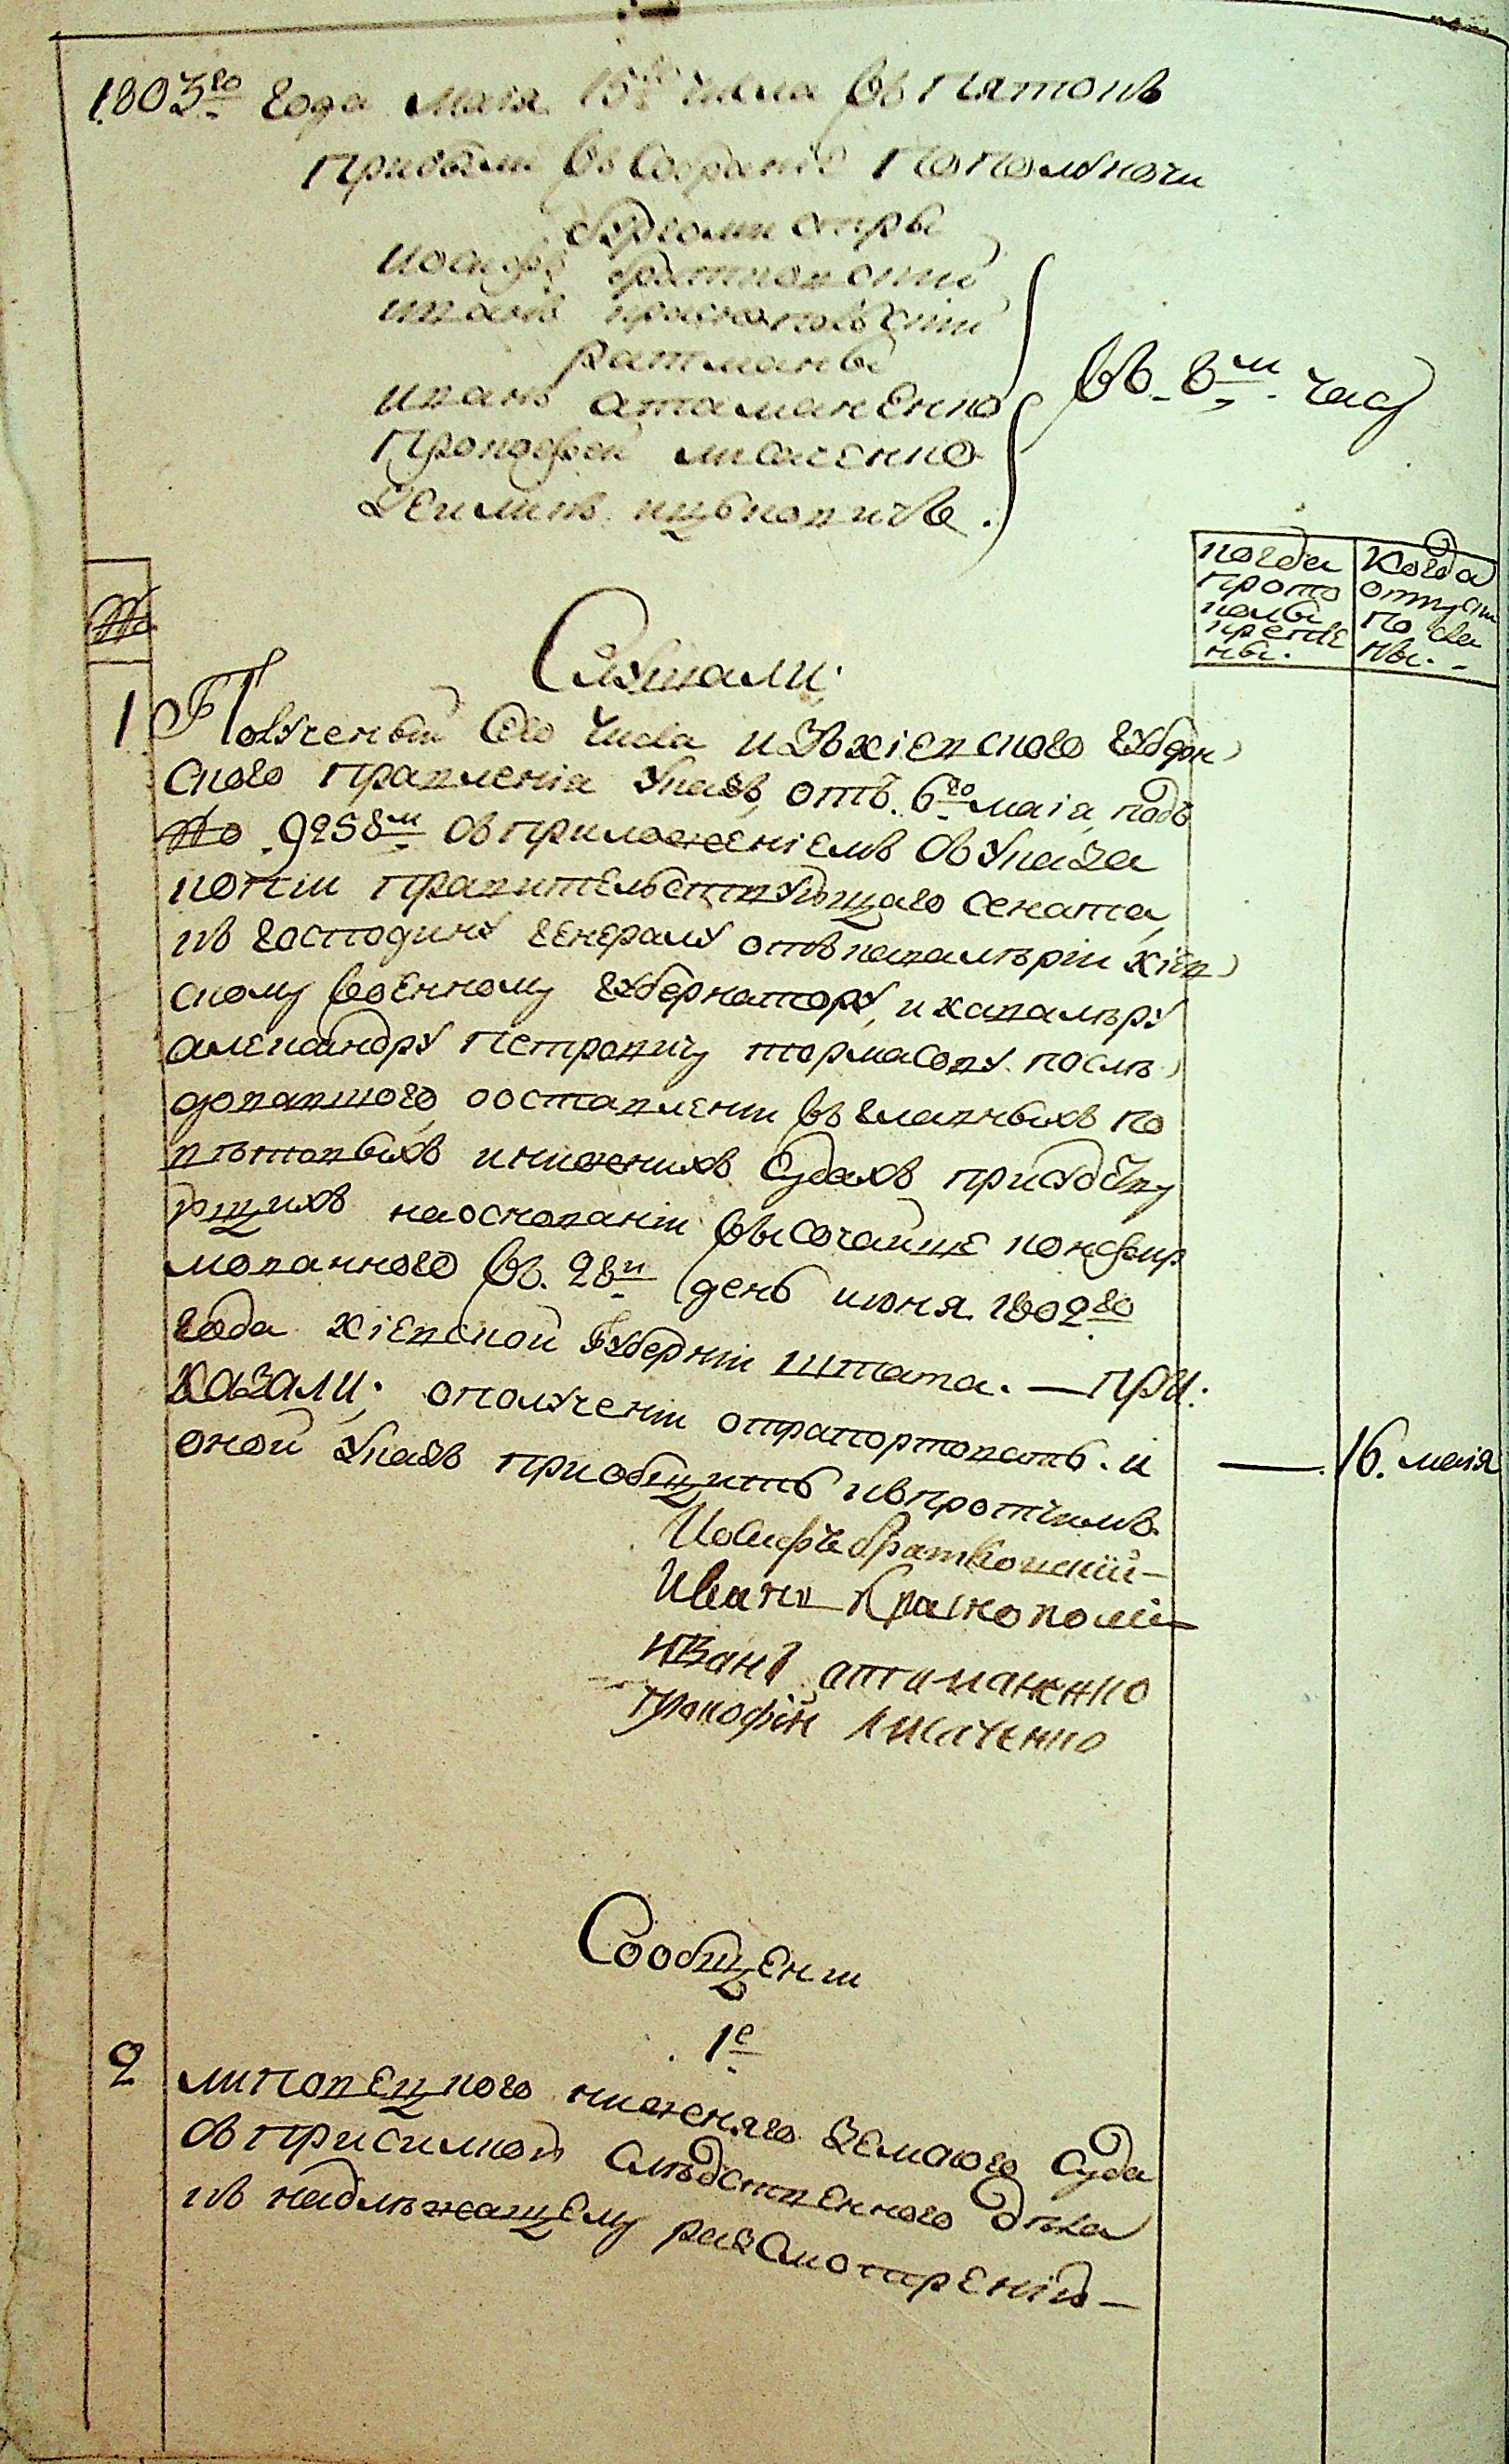 1803го года мая 15го числа въ пятокъ
Прибыли въ собраніе пополуночи
бургомистры
иосифъ братковский
иванъ краснопольский
ратманы
иванъ атаманенко
Прокофей лисаченко
въ 8м часу
№
когда прото колы крепле ны.
Когда отпущ по сла ны.
Слушали;
1 Полученый сего числа изъ киевского губерн
ского правленія указъ, отъ 6го маія, подъ
№ 9258м съ приложеніемъ съ указа
копіи правительствующаго сената,
къ господину генералу отъ кавалѣріи киев
скому военному губернатору, и кавалѣру
александру петровичу тормасову послѣ
довавшого, оставленіи въ главныхъ по
вѣтовыхъ и нижнихъ судахъ присудству
ющихъ на основаніи высочайше конфир
мованного въ 28й день июня 1802го
года киевской губерніи штата. — При:
казали; о полученіи отрапортовать. и
оной указъ приобщить къ протчимъ.
16. маія
Иосифъ братковский
Иванъ Краснополс
иванъ атаманенко
прокофій лисаченко
Сообщеніи
1е
2 липовецкого нижняго земского суда
съ присилкой слѣдственного дѣла
къ надлѣжащему разсмотренію —